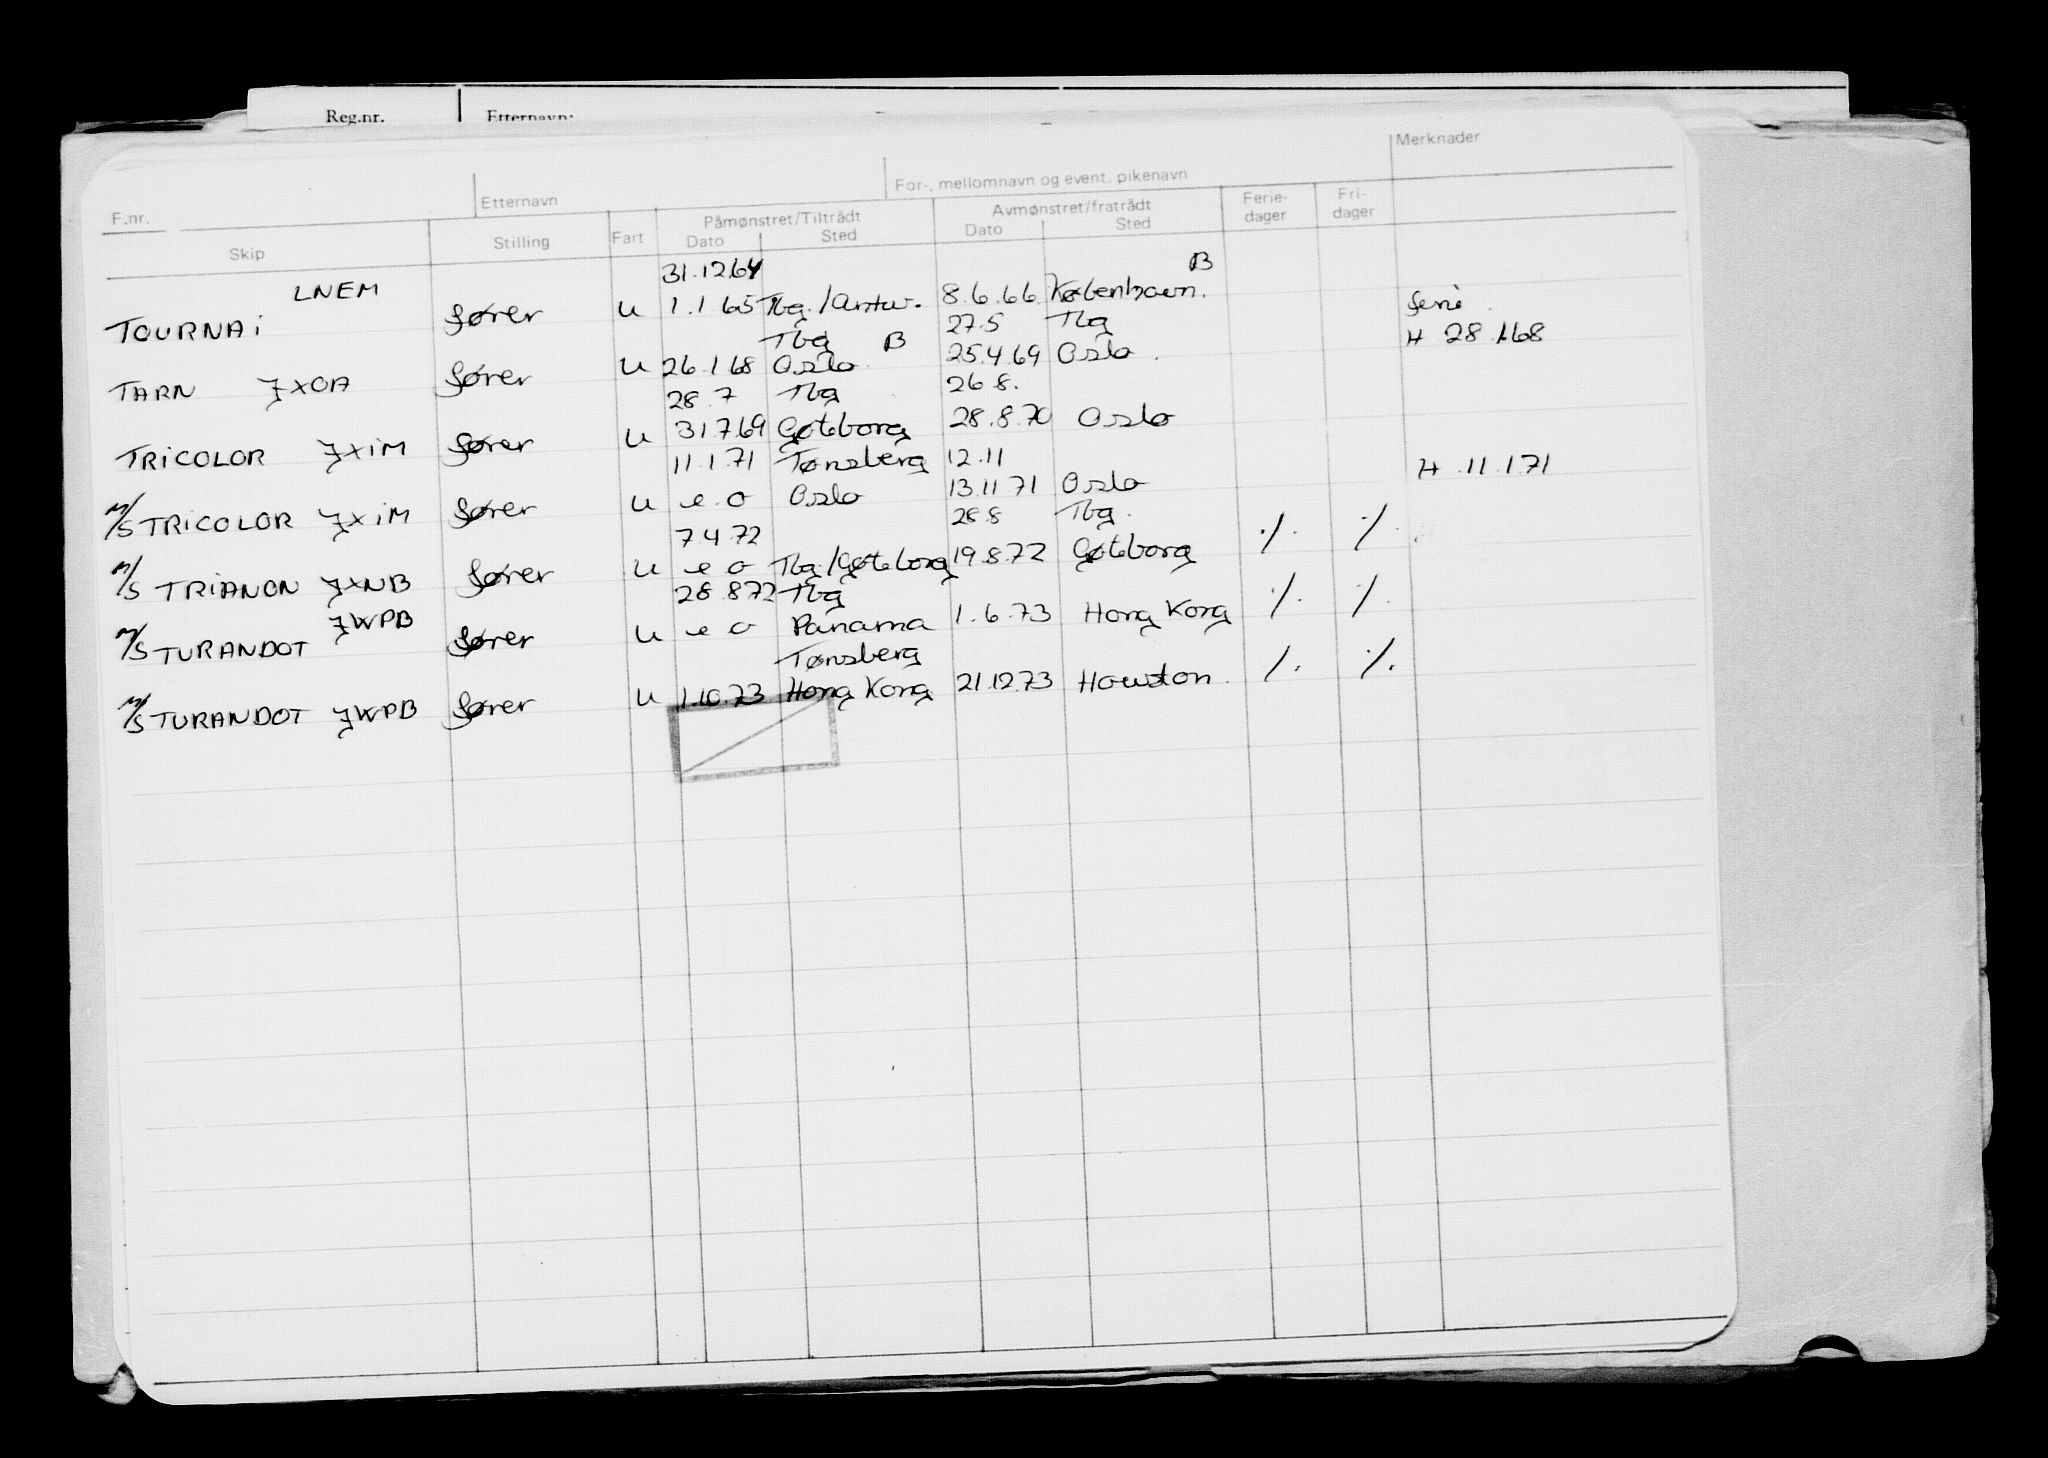 Reg.nr. Etternavn:
Merknader
For-, mellomnavn og event. pikenavn
F.nr. Etternavn
Påmønstret/Tiltrådt Avmønstret/fratrådt Ferie- Fri-
Skip Stilling Fart Dato Sted Dato Sted dager dager
31.12.64 B
LNEM
TOURNAi fører u 1.1.65 Tbg./Antw. 8.6.66 København. ferie.
Tbg B 27.5 Tbg
TARN JXOA fører u 26.1.68 Oslo. 25.4.69 Oslo. H 28.1.68
28.7 Tbg 26.8.
TRiCOLOR JXiM fører u 31.7.69 Gøteborg 28.8.70 Oslo
11.1.71 Tønsberg 12.11
M/S TRiCOLOR JXiM fører u e.o Oslo 13.11.71 Oslo H.11.1.71
7.4.72 28.8 Tbg.
M/S TRiANON JXNB fører u e o Tbg/Gøteborg 19.8.72 Gøteborg ./. ./.
28.8.72 Tbg
JWPB
M/S TURANDOT fører u e o Panama 1.6.73 Hong Kong ./. ./.
Tønsberg
M/S TURANDOT JWPB fører u 1.10.73 Hong Kong 21.12.73 Houston. ./. ./.